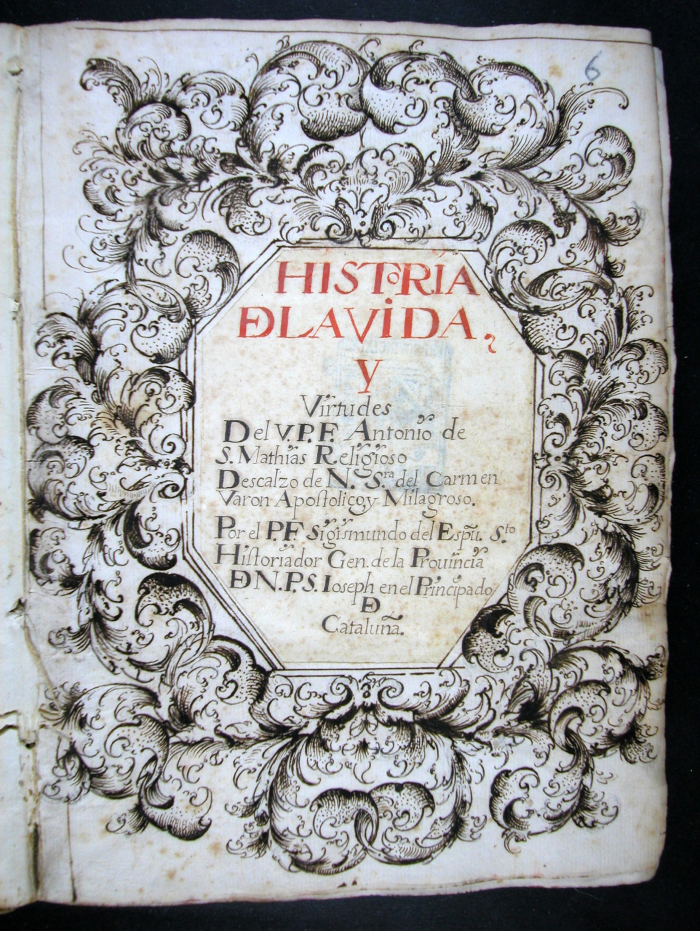 6
HISTORIA
DE LA VIDA,
y
Virtudes
Del V.P.F. Antonio de
S. Mathias Religioso
Descalzo de N.ª S.ra del Carmen
Varon Apostolico y Milagroso.
Por el P.F. Sigismundo del Espũ. S.to
Historiador Gen. de la Provincia
DE N.P.S. Ioseph en el Principado
DE
Cataluña.